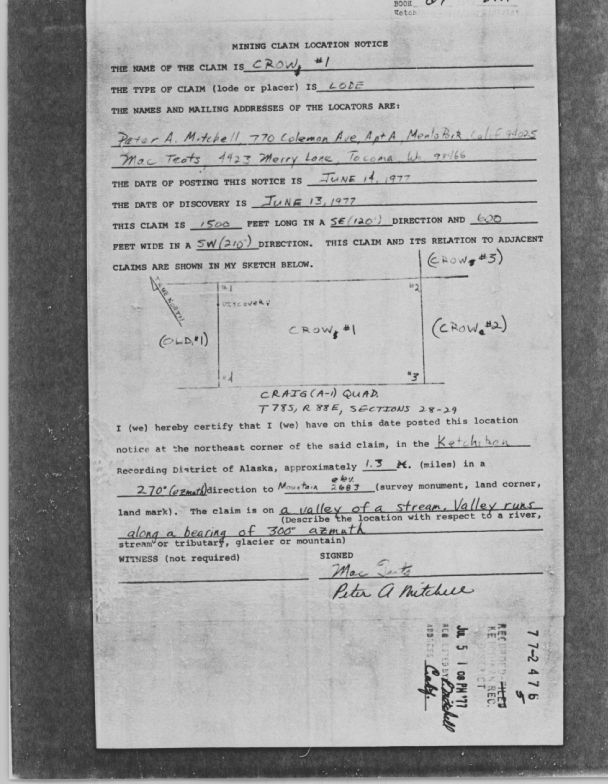 BOOK
MINING CLAIM LOCATION NOTICE
THE NAME OF THE CLAIM IS CROW, #1
THE TYPE OF CLAIM (lode or placer) IS LODE
THE NAMES AND MAILING ADDRESSES OF THE LOCATORS ARE:
Peter A. Mitchell, 770 Coleman Ave, Apt A, Menlo Park Calif 94025
Mac Teats, 4923 Merry Lane, Tacoma, Wa 98466
THE DATE OF POSTING THIS NOTICE IS JUNE 14, 1977
THE DATE OF DISCOVERY IS JUNE 13, 1977
THIS CLAIM IS 1500 FEET LONG IN A SE(120°) DIRECTION AND 600
FEET WIDE IN A SW(210°) DIRECTION. THIS CLAIM AND ITS RELATION TO ADJACENT
CLAIMS ARE SHOWN IN MY SKETCH BELOW.
(CROW, #3)
TRUE NORTH
#1
#2
DISCOVERY
(OLD, #1)
CROW, #1
(CROW, #2)
#4
#3
CRAIG (A-1) QUAD.
T78S, R 88E, SECTIONS 28-29
I (we) hereby certify that I (we) have on this date posted this location
notice at the northeast corner of the said claim, in the Ketchikan
Recording District of Alaska, approximately 1.3 M. (miles) in a
270° (azmath) direction to Mountain elev. 2683 (survey monument, land corner,
land mark). The claim is on a valley of a stream. Valley runs
(Describe the location with respect to a river,
along a bearing of 300° azmath
stream or tributary, glacier or mountain)
WITNESS (not required) SIGNED
Mac Teats
Peter A Mitchell
77-2476
RECORDED FILED
REC.
JUL 5 1 08 PM '77
REQUESTED BY Mitchell
ADDRESS Calif.